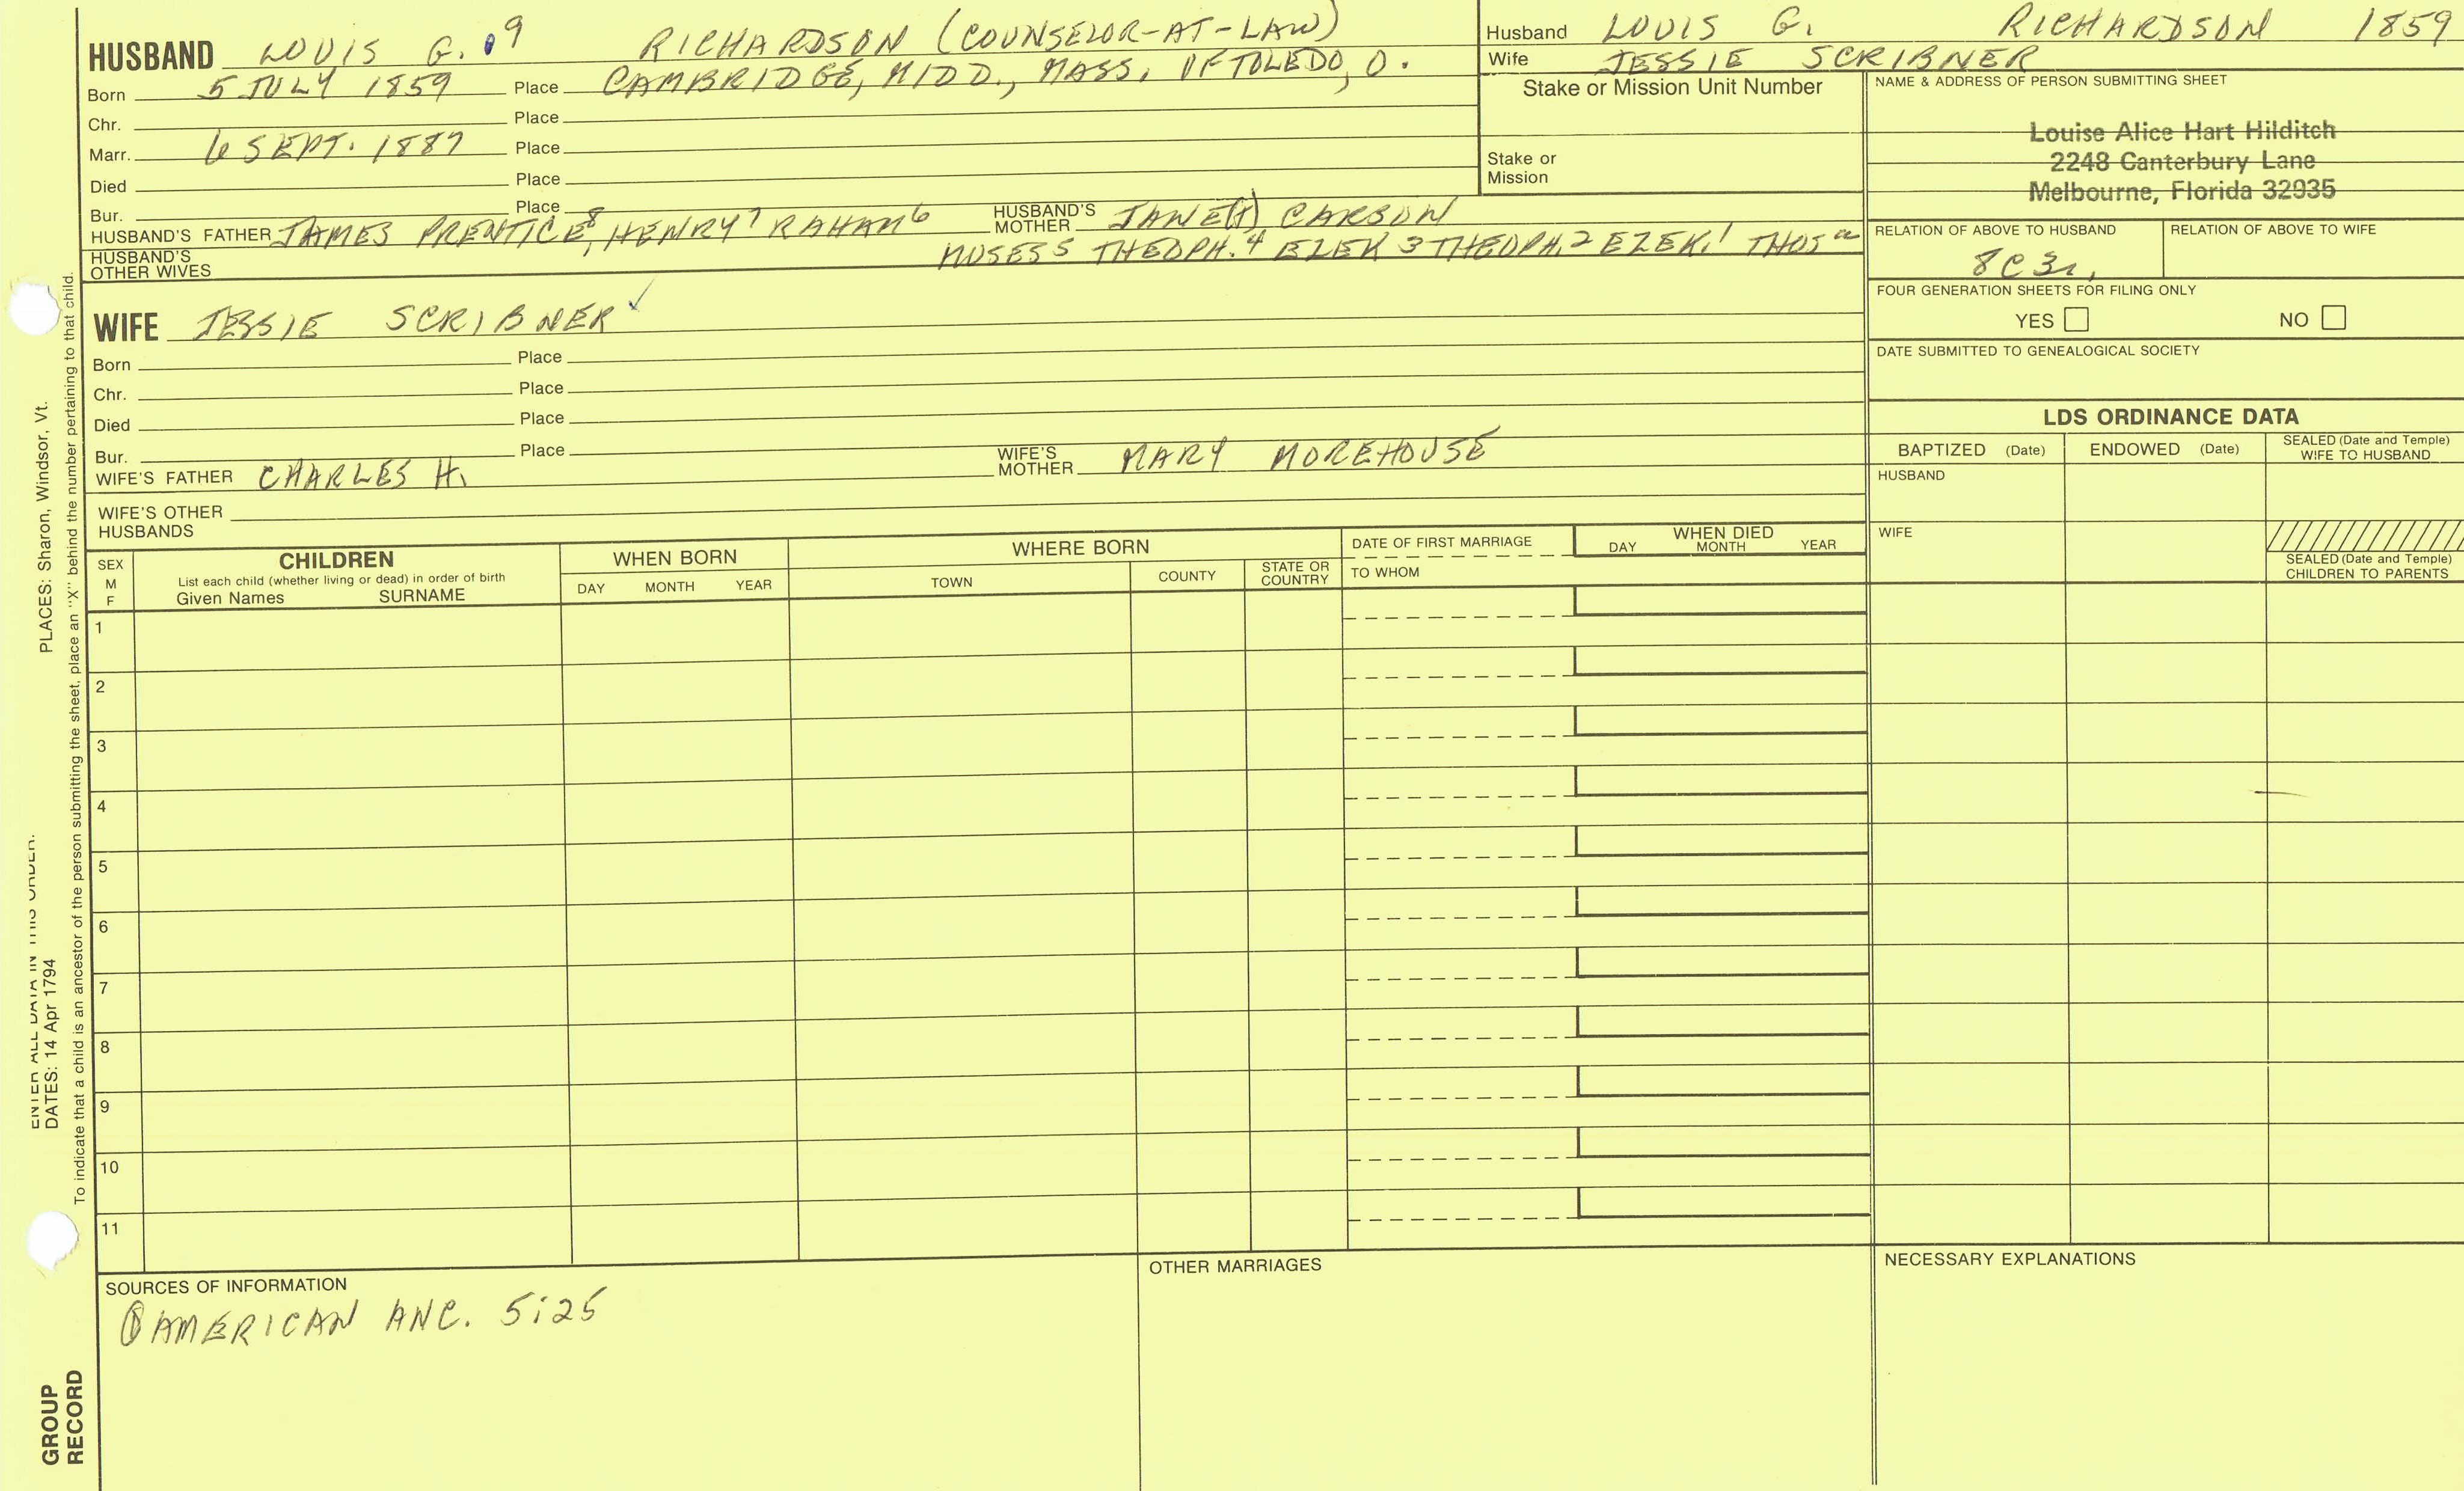 HUSBAND LOUIS G. 9 RICHARDSON (COUNSELOR-AT-LAW)
Born 5 JULY 1859 Place CAMBRIDGE, MIDD., MASS, OF TOLEDO, O.
Chr. Place
Marr. 6 SEPT. 1887 Place
Died Place
Bur. Place
HUSBAND'S FATHER JAMES PRENTICE8, HENRY7 RAHAM6 HUSBAND'S MOTHER JANE(T) CARSON
HUSBAND'S OTHER WIVES MOSES5 THEOPH.4 EZEK3 THEOPH.2 EZEK.1 THOS a
Husband LOUIS G. RICHARDSON 1859
Wife JESSIE SCRIBNER
Stake or Mission Unit Number
Stake or
Mission
NAME & ADDRESS OF PERSON SUBMITTING SHEET
Louise Alice Hart Hilditch
2248 Canterbury Lane
Melbourne, Florida 32935
RELATION OF ABOVE TO HUSBAND RELATION OF ABOVE TO WIFE
8C3r,
FOUR GENERATION SHEETS FOR FILING ONLY
YES NO
DATE SUBMITTED TO GENEALOGICAL SOCIETY
WIFE JESSIE SCRIBNER ✓
Born Place
Chr. Place
Died Place
Bur. Place
WIFE'S FATHER CHARLES H. WIFE'S MOTHER MARY MOREHOUSE
WIFE'S OTHER
HUSBANDS
LDS ORDINANCE DATA
BAPTIZED (Date) ENDOWED (Date) SEALED (Date and Temple) WIFE TO HUSBAND
HUSBAND
WIFE
SEALED (Date and Temple)
CHILDREN TO PARENTS
SEX
M
F
CHILDREN
List each child (whether living or dead) in order of birth
Given Names SURNAME
WHEN BORN
DAY MONTH YEAR
WHERE BORN
TOWN COUNTY STATE OR COUNTRY
DATE OF FIRST MARRIAGE
TO WHOM
WHEN DIED
DAY MONTH YEAR
1
2
3
4
5
6
7
8
9
10
11
SOURCES OF INFORMATION
① AMERICAN ANC. 5:25
OTHER MARRIAGES
NECESSARY EXPLANATIONS
ENTER ALL DATA IN THIS ORDER:
DATES: 14 Apr 1794 PLACES: Sharon, Windsor, Vt.
To indicate that a child is an ancestor of the person submitting the sheet, place an "X" behind the number pertaining to that child.
GROUP
RECORD